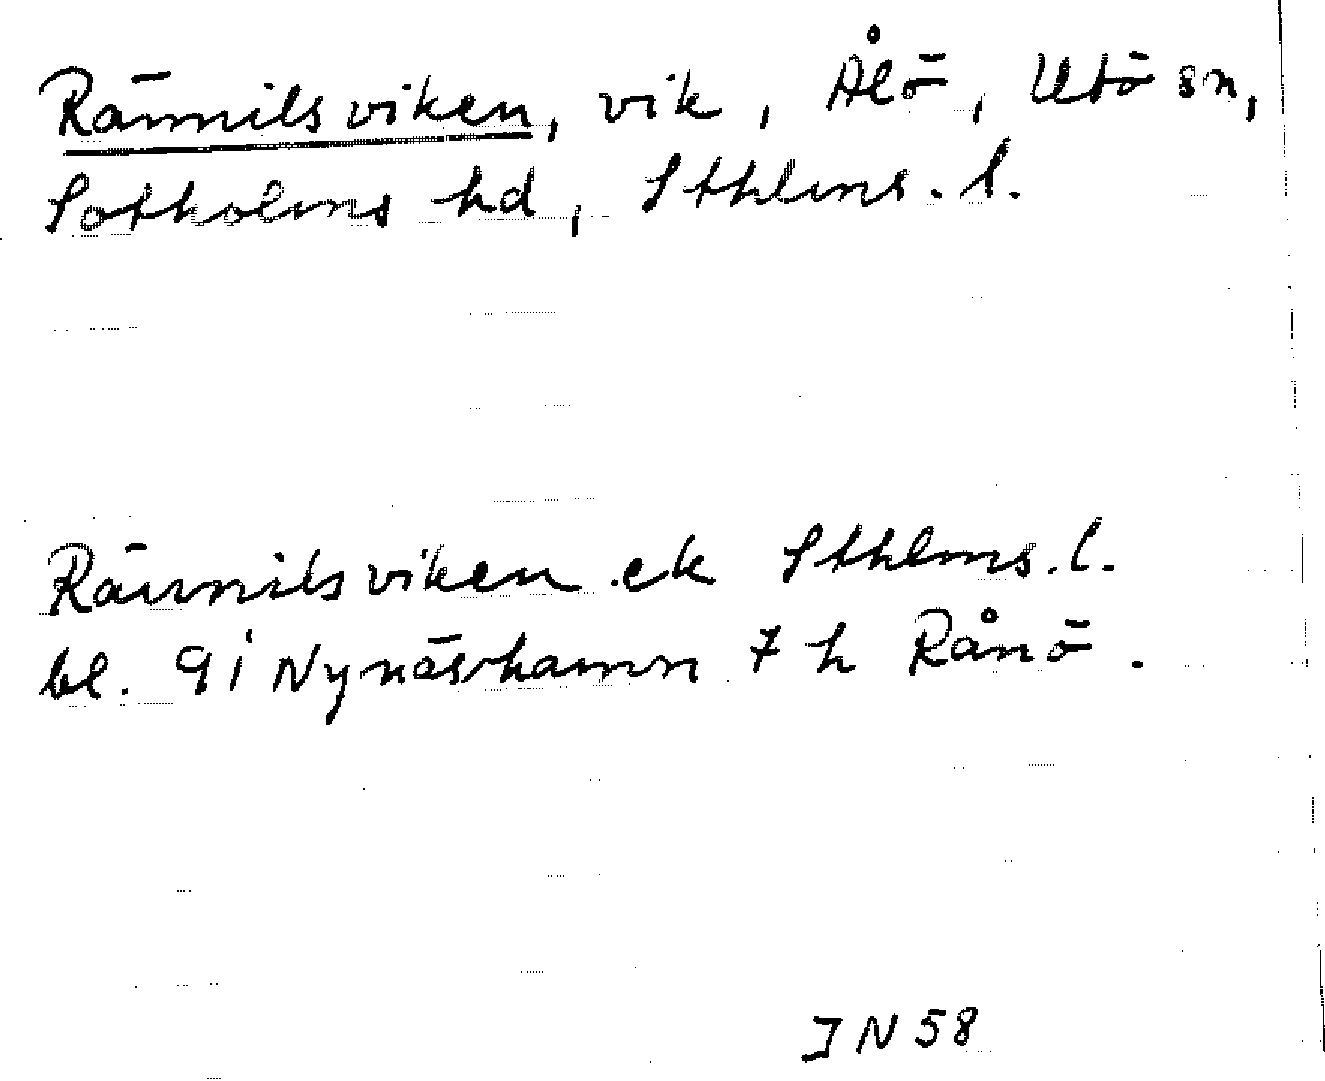 Rännilsviken, vik, Ålö, Utö sn,
Sotholms hd, Sthlms. l.
Rännilsviken ek Sthlms. l.
bl. 9 i Nynäshamn 7 h Rånö.
JN 58